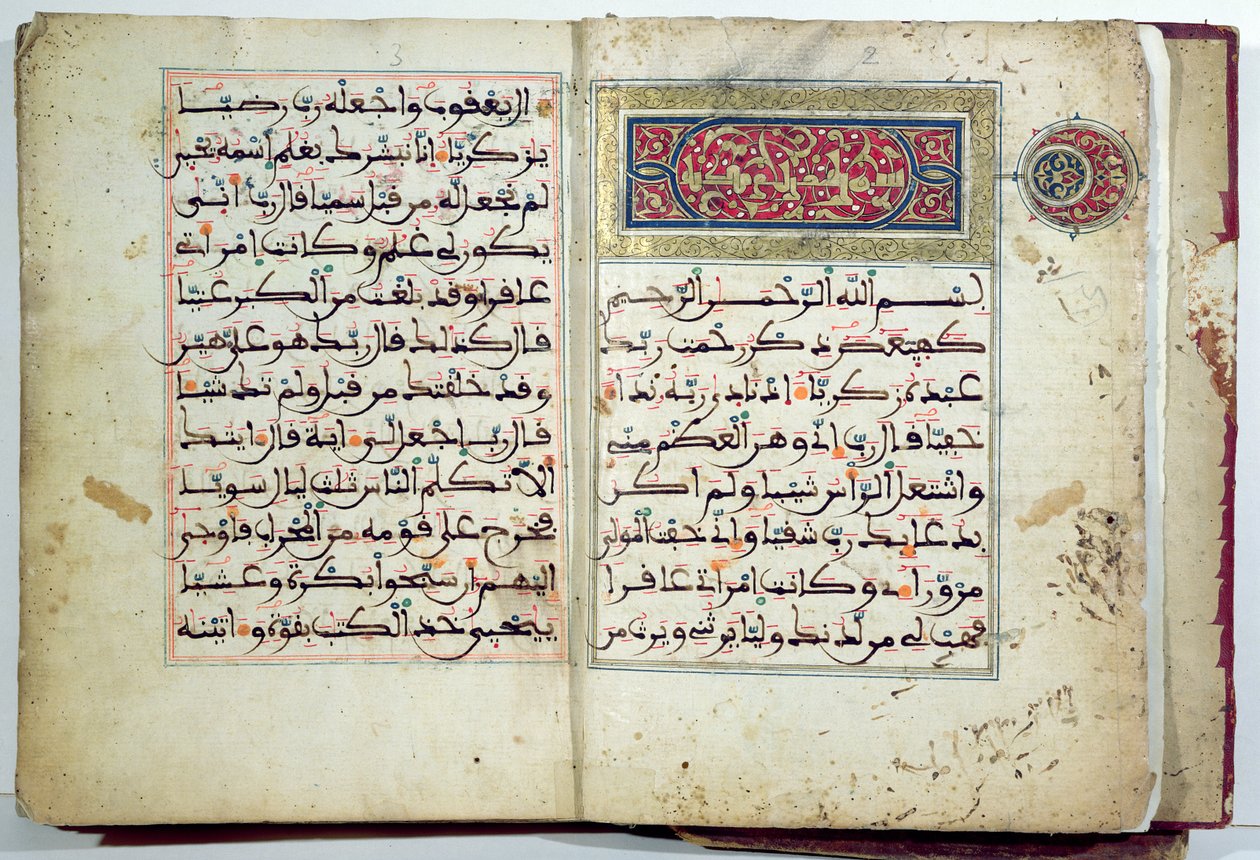 2
بسم الله الرحمن الرحيم
كهيعص ذكر رحمت ربك
عبده زكريا اذ نادى ربه نداء
خفيا قال رب اني وهن العظم مني
واشتعل الراس شيبا ولم اكن
بدعايك رب شقيا واني خفت المولي
من وراءي وكانت امراتي عاقرا
فهب لي من لدنك وليا يرثني ويرث من
3
ال يعقوب واجعله رب رضيا
يزكريا انا نبشرك بغلم اسمه يحيى
لم نجعل له من قبل سميا قال رب انى
يكون لي غلم وكانت امراتي
عاقرا وقد بلغت من الكبر عتيا
قال كذلك قال ربك هو علي هين
وقد خلقتك من قبل ولم تك شيئا
قال رب اجعل لي اية قال ايتك
الا تكلم الناس ثلث ليال سويا
فخرج على قومه من المحراب فاوحى
اليهم ان سبحوا بكرة وعشيا
ييحيى خذ الكتب بقوة واتينه